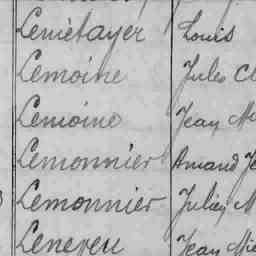 Lemétayer Louis
Lemoine Jules
Lemoine Jean
Lemonnier Amand
Lemonnier Julien
Leneveu Jean